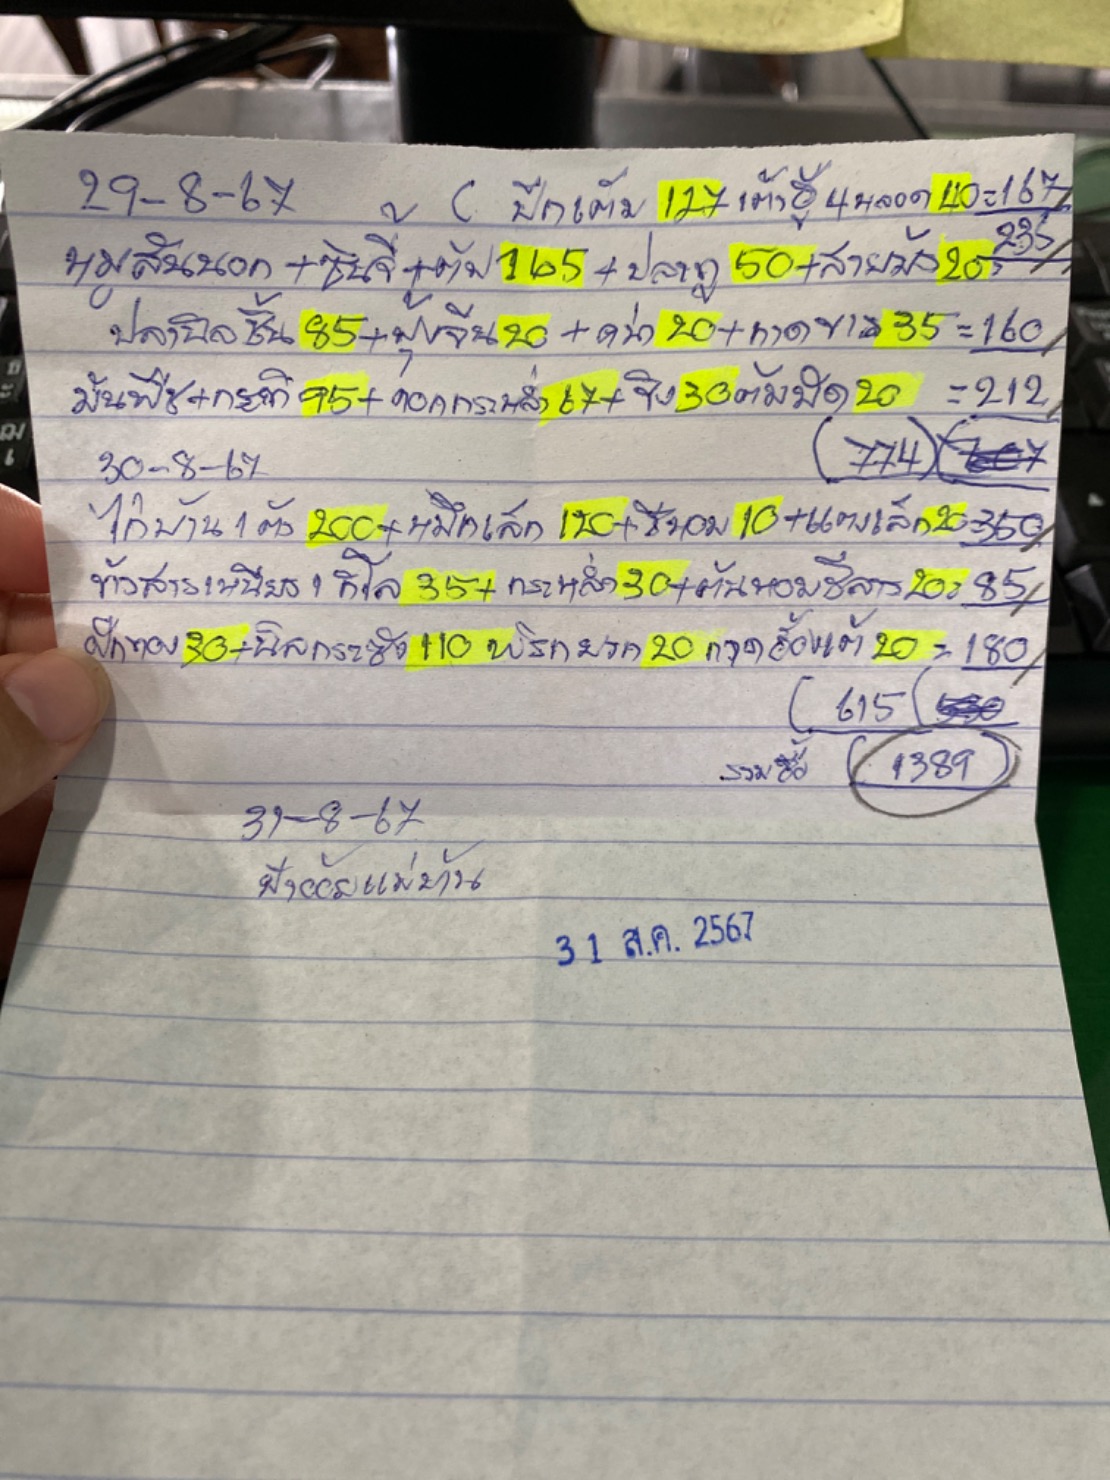 29-8-67 ( ปีกเต็ม 127 เต้าหู้ 4 หลอด 40=167
หมูสันนอก + ซี่นจี่ + ตับ 165 + ปลาทู 50 + สายบัว 20= 235
ปลานิลชิ้น 85 + ผุ้งจีน 20 + คน่า 20 + กาดขาว 35 =160
มันพืช + กระทิ 95 + ดอกกระหล่ำ 67 + ขิง 30 ต้มผัด 20 =212
30-8-67 (774)
ไก่บ้าน 1 ตัว 200 + หมึกเล็ก 120 + ชีหอม 10 + แตงเล็ก 20=350
ข้าวสารเหนียว 1 กิโล 35 + กระหล่ำ 30 + ต้นหอมชีลาว 20= 85
ฝักทอง 30 + นิลกระชัง 110 พริกยวก 20 กวาดฮ้องเต้ 20 = 180
( 615
รวมซื้อ (1389)
31-8-67
แม่บ้าน
31 ส.ค. 2567